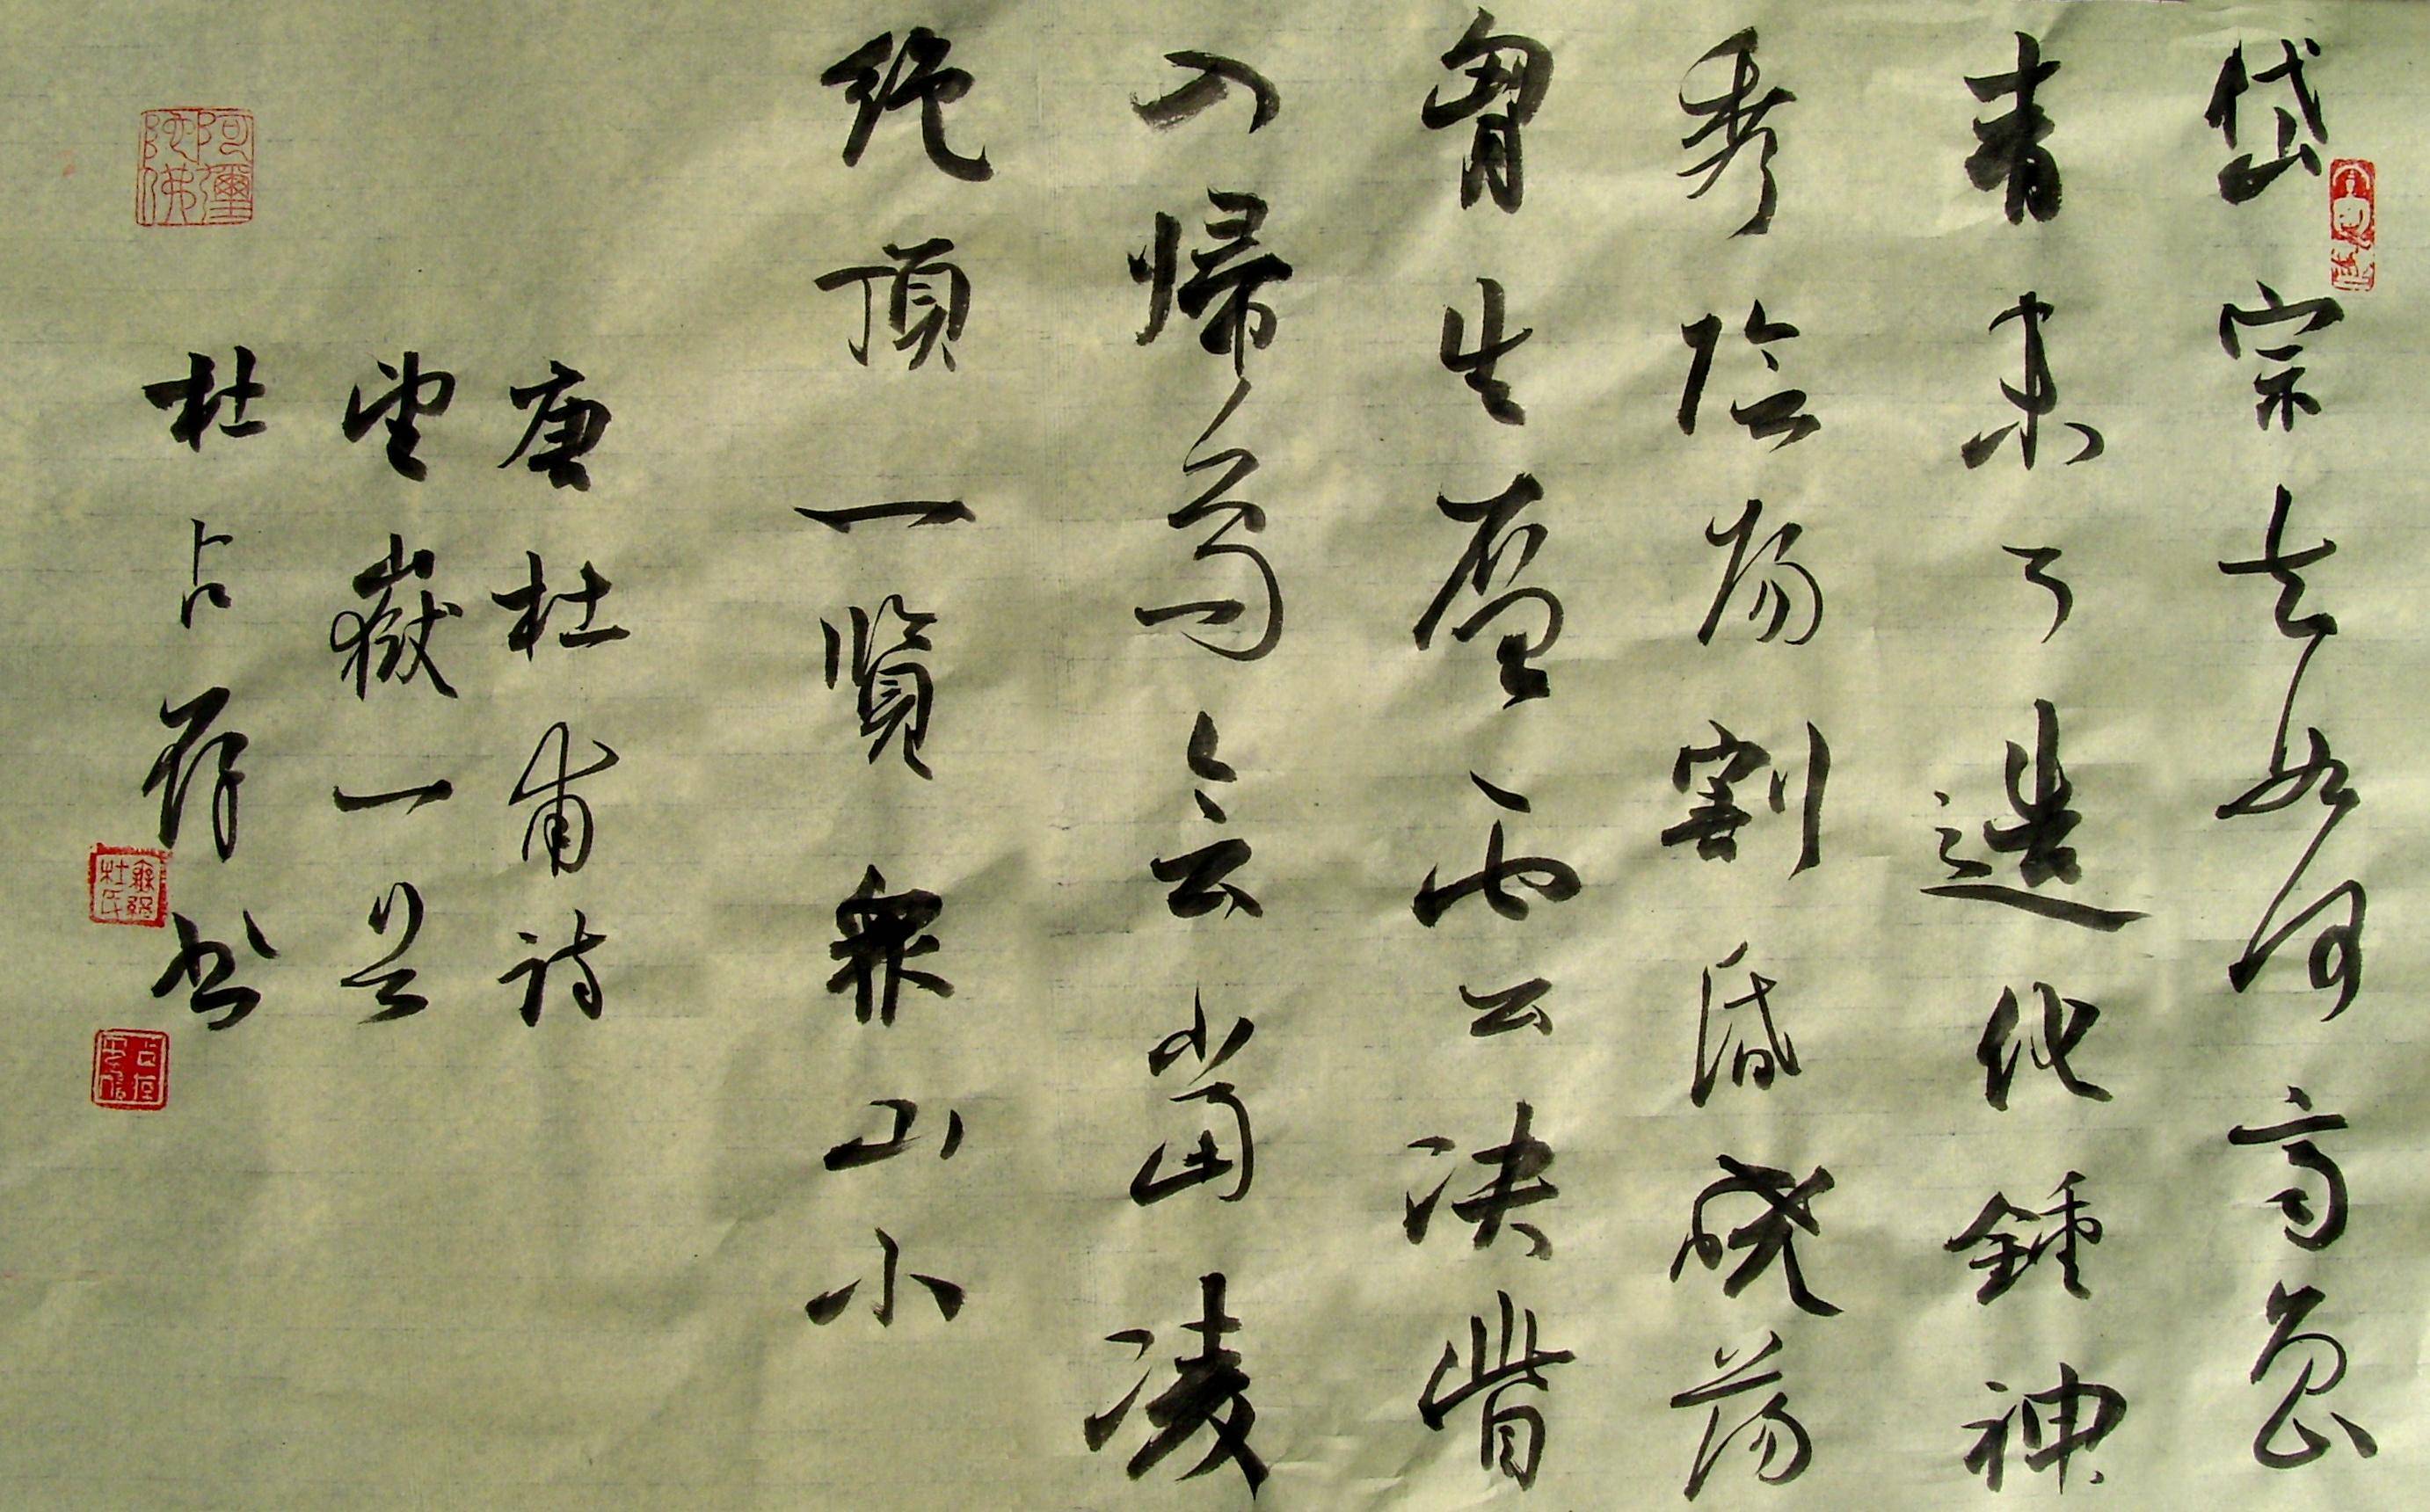 岱宗夫如何齊魯
青未了造化鍾神
秀陰陽割昏曉蕩
胷生層雲決眥
入歸鳥会當凌
絕頂一覽衆山小
唐杜甫詩
望嶽一首
杜占存书
阿彌陀佛